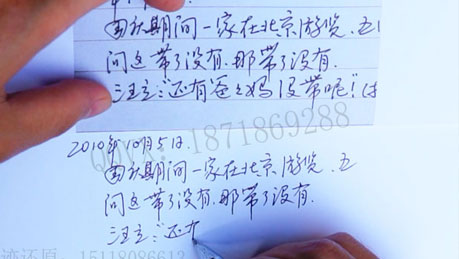 国庆期间一家在北京游览.五
问这带了没有.那带了没有.
汪立:"还有爸爸妈没带呢!"
1871869288
2010年10月5日.
国庆期间一家在北京游览.五
问这带了没有.那带了没有.
汪立:"还
迹还原 15118086613